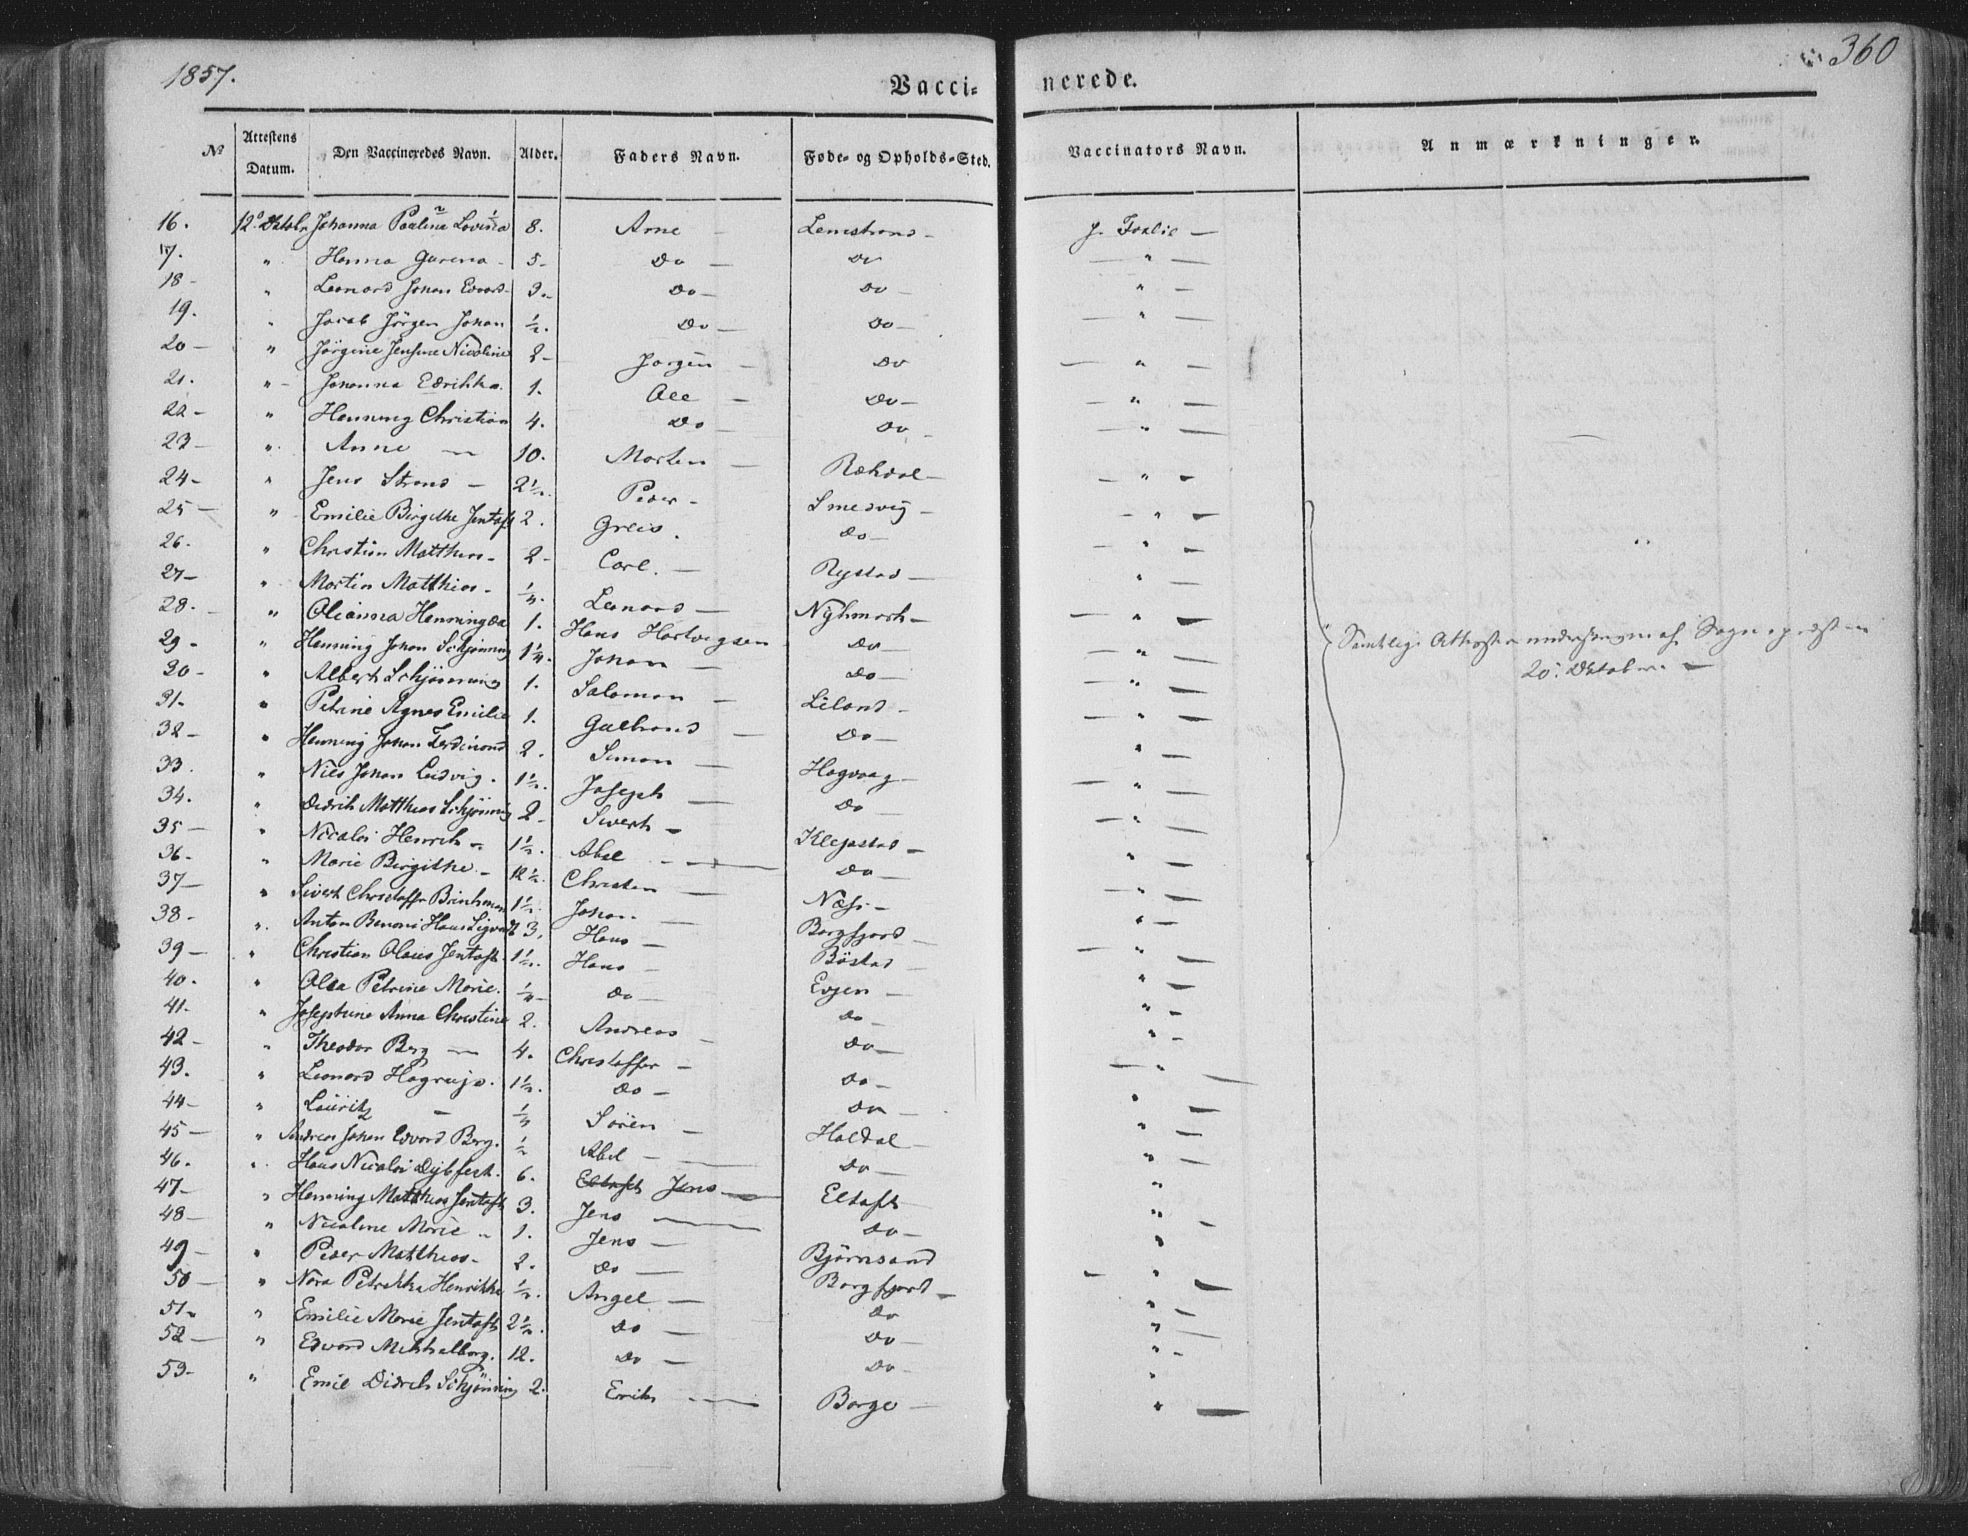 1857.
360
Vacci- nerede.
No Attestens Datum. Den Vaccineredes Navn. Alder. Faders Navn. Føde- og Opholds-Sted. Vaccinators Navn. Anmærkninger.
16. 12. Octobr Johanna Paulina Lovisa 8. Arne - Lemstrand - J. -
17. " Hanna - 5 - Do - Do - " -
18 - " Leonard Johan Edvard 3 - Do - Do - " -
19. " Jacob Jørgen Johan ½. Do - Do - " -
20 - " Jørgine Jensine Nicoline 2 - Jørgen - Do - " -
21. " Johanna Edrikka. 1. Ole - Do - " -
22 - " Henning Christian 4. Do - Do - " -
23 - " Anne - 10. Morten - Rekdal - " -
24 - " Jens Strand - 2½. Peder - Smedvig - " -
25 - " Emilie Birgithe Jentoft 2. Greis. Do - " -
26. " Christian Matthias - 2 - Carl. - Rystad - " -
27 - " Martin Matthias - ¼. Leonard - Nykmark - " -
28. " Olianna Henningda 1. Hans Hartvigsen Do - " -
29 - " Henning Johan Schjønning 1¼. Johan - Do - " -
30 - " Albert Schjønning 1. Salamon - Liland - " -
31. " Petrine Agnes Emilie 1. Gulbrand - Do - " -
32 - " Henning Johan Ferdinand 2. Simon - Hagvaag - " -
33. " Nils Johan Ludvig. 1½. Joseph - Do " -
34. " Didrik Matthias Schjønning 2 - Sivert - Klepstad - " -
35 - " Nicolai Henrik - 1½. Abel - Do - " -
36. " Marie Birgithe. - 12½. Christen - Næs - " -
37 - " Sivert Christoffer Brinkman 1½. Johan - Borgfjord - " -
38. " Anton Benoni Hans Sigvart 3. Hans - Bøstad - " -
39 - " Christian Olaus Jentoft. 1½. Hans - Evjen - " -
40. " Olea Petrine Marie. ¼ - Do - Do - " -
41. " Josephine Anna Christine 2. Andreas - Do - " -
42 - " Theodor Berg - 4. Christoffer - Do - " -
43. " Leonard 1½. Do - Do - " -
44 - " Lauritz - Søren - Haldal - " -
45 - " Andreas Johan Edvard Berg. ½ Abel - Do - " -
46. " Hans Nicolai Dybfest. 6. Eltoft Jens - Eltoft - "
47 - " Henning Matthias Jentoft 3. Jens - Do - " -
48 - " Nicoline Marie " 1. Jens - Bjørnsand "
49 - " Peder Matthias - 2. Do - Borgfjord - " -
50 - " Nora Petrikka Henrikke ½. Angel - Do " -
51 - " Emilie Marie Jentoft 2½. Do - Do - " -
52 - " Edvard Mikkalborg. 12. Do - Do - "
53 - " Emil Didrik Schjønning 2. Erik - Borge - " -
Samtlige Attester af Sognepræsten
20. Oktober. -